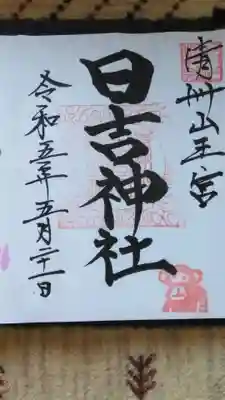 清州山王宮
日吉神社
令和五年五月二十一日